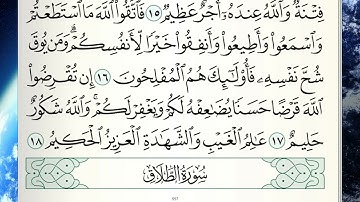 فِتْنَةٌ وَٱللَّهُ عِندَهُۥٓ أَجْرٌ عَظِيمٌ ١٥ فَٱتَّقُوا۟ ٱللَّهَ مَا ٱسْتَطَعْتُمْ
وَٱسْمَعُوا۟ وَأَطِيعُوا۟ وَأَنفِقُوا۟ خَيْرًا لِّأَنفُسِكُمْ ۗ وَمَن يُوقَ
شُحَّ نَفْسِهِۦ فَأُو۟لَـٰٓئِكَ هُمُ ٱلْمُفْلِحُونَ ١٦ إِن تُقْرِضُوا۟
ٱللَّهَ قَرْضًا حَسَنًا يُضَـٰعِفْهُ لَكُمْ وَيَغْفِرْ لَكُمْ ۚ وَٱللَّهُ شَكُورٌ
حَلِيمٌ ١٧ عَـٰلِمُ ٱلْغَيْبِ وَٱلشَّهَـٰدَةِ ٱلْعَزِيزُ ٱلْحَكِيمُ ١٨
سُورَةُ ٱلطَّلَاقِ